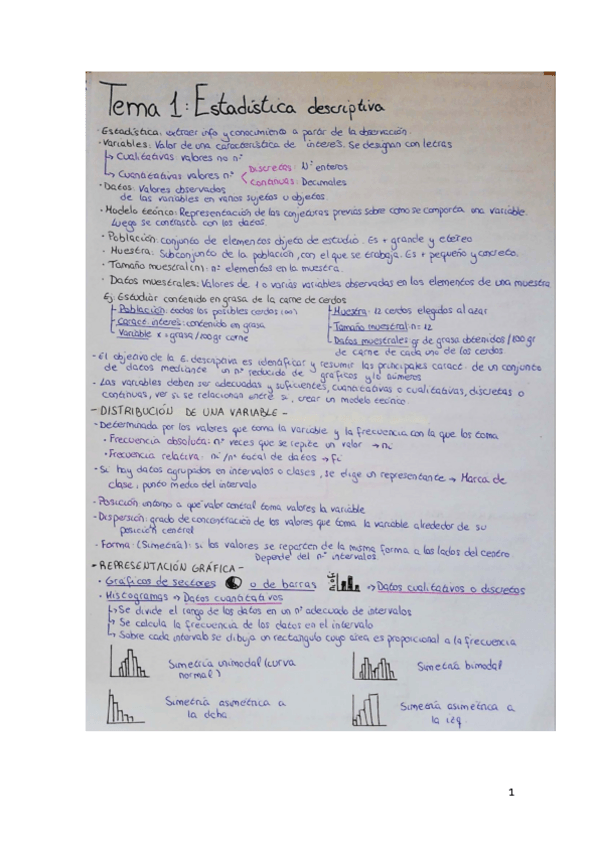 Tema 1: Estadística descriptiva
· Estadística: extraer info y conocimiento a partir de la observación.
· Variables: Valor de una característica de interés. Se designan con letras
↳ Cualitativas: valores no nº
↳ Cuantitativas valores nº < Discretas: Nº enteros
Continuas: Decimales
· Datos: Valores observados
de las variables en varios sujetos u objetos.
· Modelo teórico: Representación de las conjeturas previas sobre como se comporta una variable.
Luego se contrasta con los datos.
· Población: conjunto de elementos objeto de estudio. Es + grande y etéreo
· Muestra: Subconjunto de la población, con el que se trabaja. Es + pequeño y concreto.
· Tamaño muestral (n): nº elementos en la muestra.
· Datos muestrales: Valores de 1 o varias variables observadas en los elementos de una muestra
Ej: Estudiar contenido en grasa de la carne de cerdos
Población: todos los posibles cerdos (∞)
Caract. interés: contenido en grasa
Variable x = grasa/100gr carne
Muestra: 12 cerdos elegidos al azar
Tamaño muestral: n = 12
Datos muestrales gr de grasa obtenidos/100 gr
de carne de cada uno de los cerdos.
- El objetivo de la E. descriptiva es identificar y resumir las principales caract. de un conjunto
de datos mediante un nº reducido de gráficos y/o números
- Las variables deben ser adecuadas y suficientes, cuantitativas o cualitativas, discretas o
continuas, ver si se relacionan entre sí, crear un modelo teórico.
- DISTRIBUCIÓN DE UNA VARIABLE -
- Determinada por los valores que toma la variable y la frecuencia con la que los toma
· Frecuencia absoluta: nº veces que se repite un valor → ni
· Frecuencia relativa: ni/nº total de datos → fi
- Si hay datos agrupados en intervalos o clases, se elige un representante → Marca de
clase, punto medio del intervalo
- Posición entorno a qué valor central toma valores la variable
- Dispersión: grado de concentración de los valores que toma la variable alrededor de su
posición central
- Forma: (Simetría): si los valores se reparten de la misma forma a los lados del centro
Depende del nº intervalos.
- REPRESENTACIÓN GRÁFICA -
· Gráficos de sectores o de barras → Datos cualitativos o discretos
· Histogramas → Datos cuantitativos
↳ Se divide el rango de los datos en un nº adecuado de intervalos
↳ Se calcula la frecuencia de los datos en el intervalo
↳ Sobre cada intervalo se dibuja un rectangulo cuyo area es proporcional a la frecuencia
Simetría unimodal (curva
normal)
Simetría bimodal
Simetría asimétrica a
la dcha
Simetría asimétrica a
la izq.
1